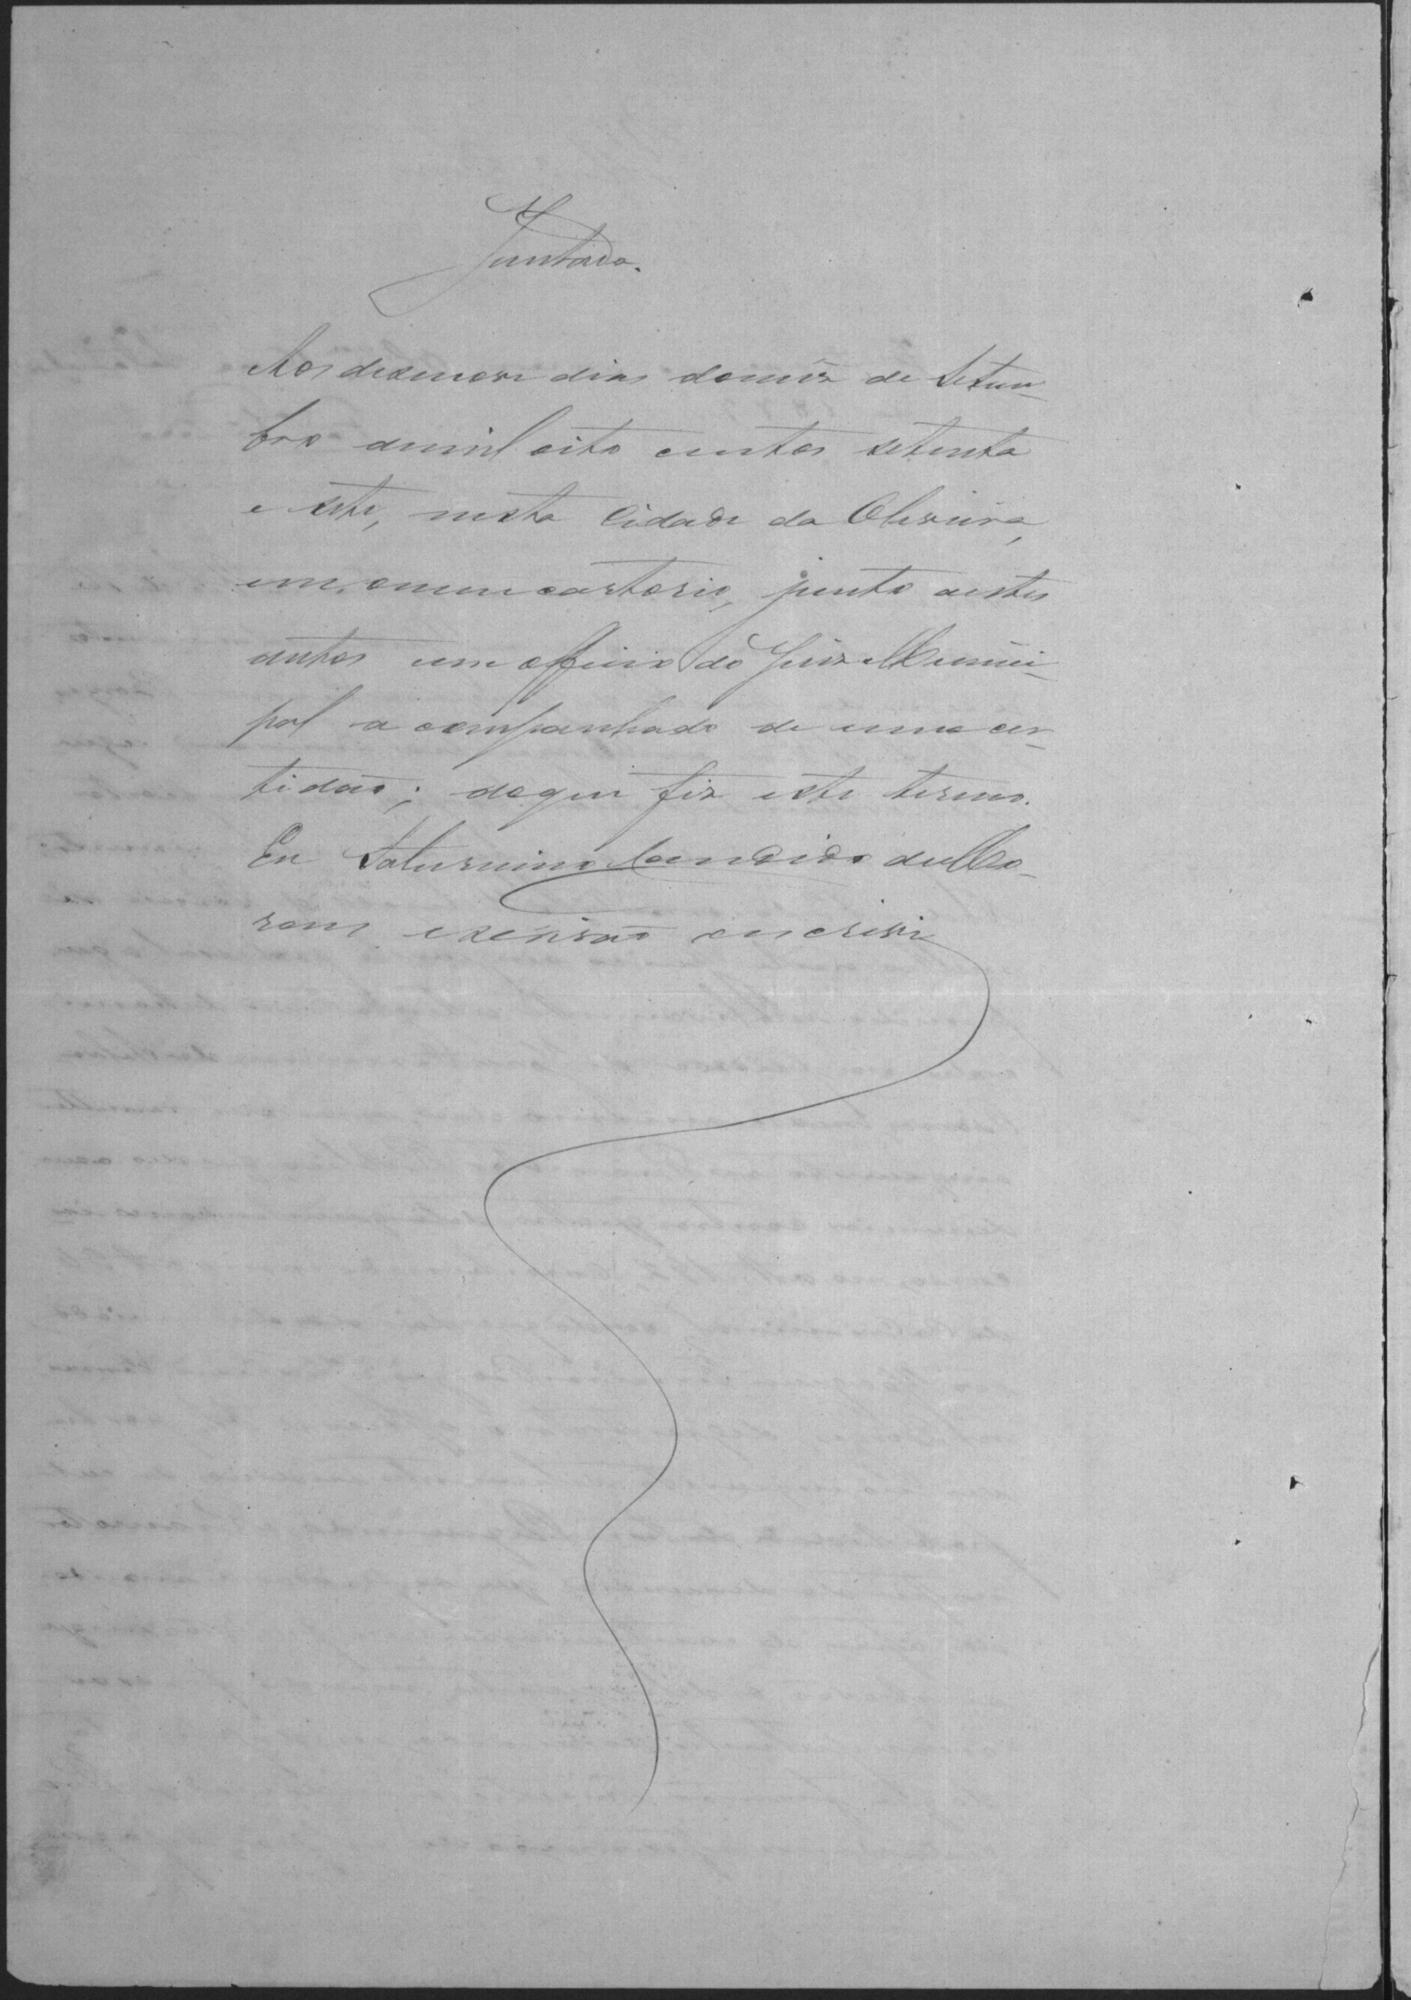 Juntada.
Aos dezenove dias domez de Setem-
bro demil oito centos setenta
e sete, nesta Cidade da Oliveira,
em omeu cartorio, junto aestes
autos um officio do Juiz Munici-
pal a companhado de uma cer-
tidão; doque fiz este termo.
Eu Saturnino Candido de Mo-
raes escrivão o escrivi